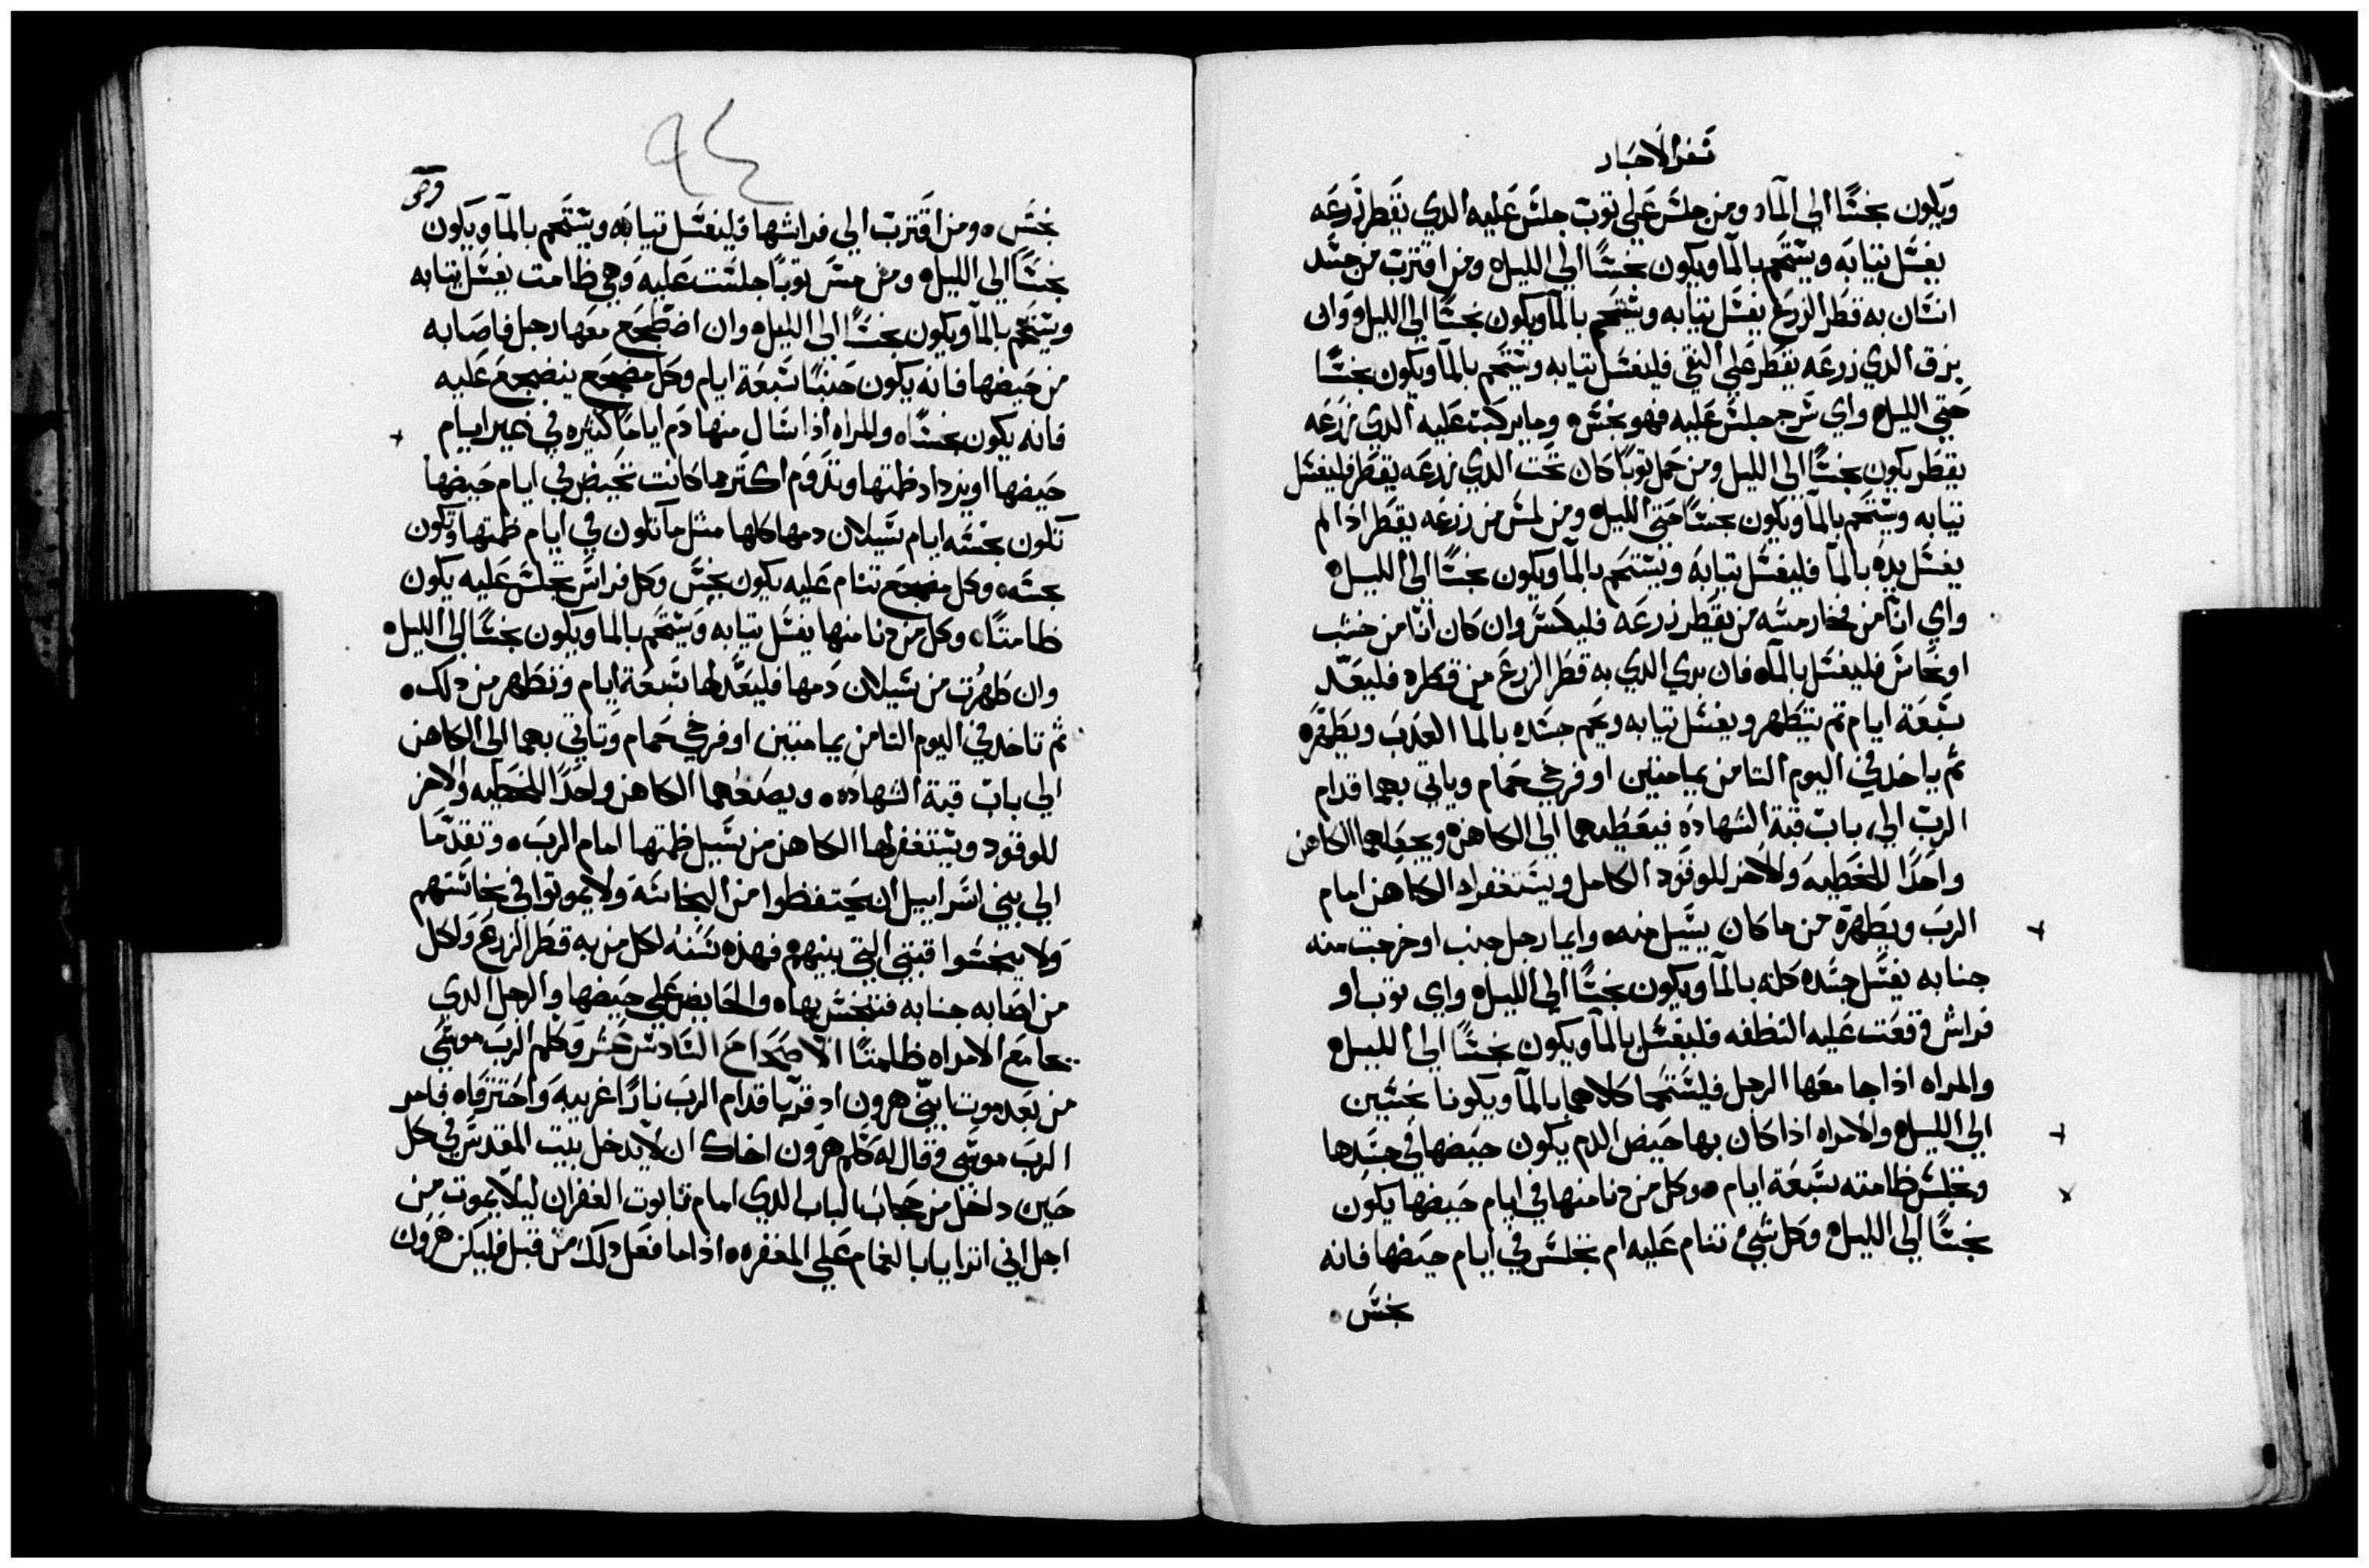 سفر الاحبار
ويكون نجسًا الي المآء ومن جلس علي توب جلس عليه الدي يقطر زرعه
يغسل تيابه ويستحم بالمآ ويكون نجسًا الي الليل ومن اقترب من جسد
انسان به قطر الزرع يغسل تيابه ويستحم بالمآ ويكون نجسًا الي الليل وان
بزق الدي زرعه يقطر علي النقي فليغسل تيابه ويستحم بالمآ ويكون نجسًا
حتي الليل واي سرج جلس عليه فهو نجس وما يركبت عليه الدي زرعه
يقطر يكون نجسًا الي الليل ومن حمل توبًا كان تحت الدي زرعه يقطر فليغسل
تيابه ويستحم بالمآ ويكون نجسًا حتي الليل ومن لمس من زرعه يقطر ادا لم
يغسل يده بالمآ فليغسل تيابه ويستحم بالمآ ويكون نجسًا الي الليل
واي انآ من فخار مسه من يقطر زرعه فليكسر وان كان انآ من خشب
او نحاس فليغسل بالمآء فان بري الدي به قطر الزرع من قطره فليعد
سبعة ايام تم يتطهر ويغسل تيابه ويحم جسده بالمآ العدب ويطهره
تم ياخد في اليوم التامن يمامتين او فرخي حمام وياتي بهما قدام
الرب الي باب قبة الشهاده فيعطيهما الي الكاهن ويجعلهما الكاهن
واحدًا للخطيه والاخر للوقود الكامل ويستغفر له الكاهن امام
الرب ويطهره من ما كان يسيل منه وايما رجل جنب او خرجت منه
جنابه يغسل جسده كله بالمآ ويكون نجسًا الي الليل واي توب او
فراش وقعت عليه النطفه فليغسل بالمآ ويكون نجسًا الي الليل
والمراه اداجامعها الرجل فليستحما كلاهما بالمآ ويكونا نجسين
الي الليل والامراه اذا كان بها حيض الدم يكون حيضها في جسدها
وتجلس ظامته سبعة ايام وكل من دنا منها في ايام حيضها يكون
نجسًا الي الليل وكل شيء تنام عليه ام تجلس في ايام حيضها فانه
نجس
٩٤
نجس ومن اقترب الي فراشها فليغسل تيابه ويستحم بالمآ ويكون
نجسًا الي الليل ومن مس توبًا جلست عليه وهي ظامت يغسل تيابه
ويستحم بالمآ ويكون نجسًا الي الليل وان اضطجع معها رجل فاصابه
من حيضها فانه يكون جنبًا سبعة ايام وكل مضجع ينضجع عليه
فانه يكون نجسًا والمراه اذا سال منها دم ايامًا كثيره في غير ايام
حيضها او يزداد ظمتها وتدوم اكتر ما كانت تحيض في ايام حيضها
تكون نجسه ايام سيلان دمها كلها متل ما تكون في ايام ظمتها وتكون
نجسه وكل مضجع تنام عليه يكون نجس وكل فراش تجلس عليه يكون
ظامتًا وكل من دنا منها يغسل تيابه ويستحم بالما ويكون نجسًا الي الليل
وان طهرت من سيلان دمها فليعد لها سبعة ايام وتطهر من دلك
تم تاخد في اليوم التامن يمامتين او فرخي حمام وتاتي بهما الي الكاهن
الي باب قبة الشهاده ويصنعهما الكاهن واحدًا للخطيه والاخر
للوقود ويستغفر لها الكاهن من سيل ظمتها امام الرب وتقدما
الي بني اسراييل ان يحتفظوا من النجاسة ولا يموتوا في نجاستهم
ولا ينجسوا قبتي التي بينهم فهذه سنة لكل من به قطر الزرع ولكل
من اصابه جنابه فتنجس بها والحايض علي حيضها والرجل الدي
يجامع الامراه ظامتًا الاصحاح السادس عشر وكلم الرب موسي
من بعد موت ابني هرون اد قربا قدام الرب نارًا غريبه واحترقاه فامر
الرب موسي وقال له كلم هرون اخاك ان لا يدخل بيت المقدس في كل
حين داخل من حجاب الباب الدي امام تابوت الغفران ليلا يموت من
اجل اني اترايا بالغمام علي المغفره اذا ما فعل دلك من قبل فليكن هرون